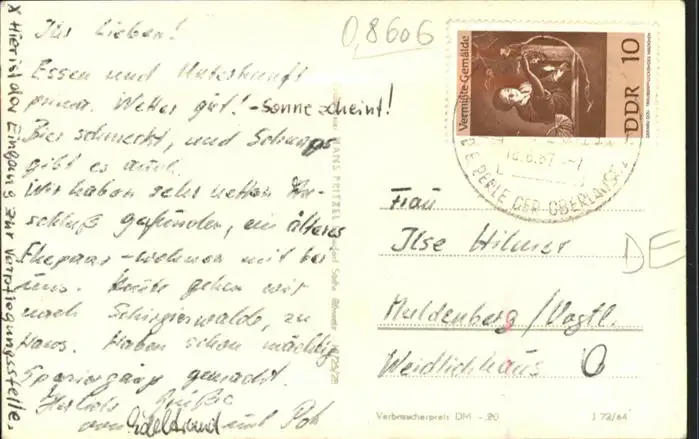 x Hier ist der Eingang zur Verpflegungsstelle.
Ihr Lieben!
Essen und Unterkunft
prima. Wetter gut! - Sonne scheint!
Bier schmeckt, und Schnaps
gibt es auch.
Wir haben sehr netten An-
schluß gefunden, ein älteres
Ehepaar - wohnen mit bei
uns. Heute gehen wir
nach Schirgiswalde, zu
Haus. Haben schon mächtig
Spaziergänge gemacht.
Herzliche Grüße
von Edeltraud und
0,8606
Vermißte-Gemälde
DDR 10
PERLE DER OBERLAUSITZ
HANS FRITZEL
Frau
Ilse Hilmer
DE
Muldenberg/Vogtl.
Weidlichhaus
Verbraucherpreis DM -.20
J 72/64